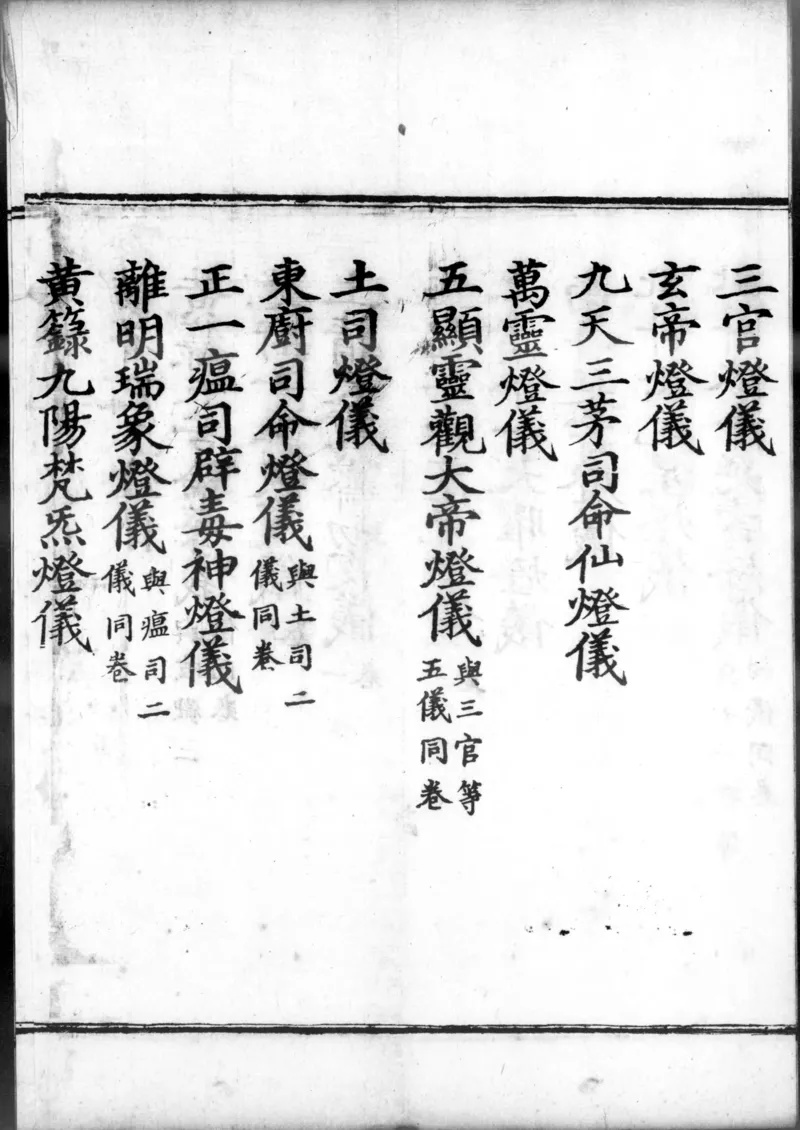 三官燈儀
玄帝燈儀
九天三茅司命仙燈儀
萬靈燈儀
五顯靈觀大帝燈儀
與三官等
五儀同卷
土司燈儀
東廚司命燈儀
與土司二
儀同卷
正一瘟司辟毒神燈儀
離明瑞象燈儀
與瘟司二
儀同卷
黃籙九陽梵炁燈儀